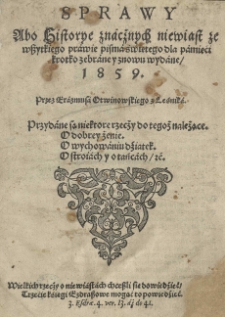 SPRAWY
Abo Historye znacznych niewiast ze
wszytkiego prawie pisma świętego dla pámięci
krotko zebráne y znowu wydáne/
1859.
Przez Erázmusá Otwinowskiego z Leśniká.
Przydáne są niektore rzeczy do tegoż należące.
O dobrey żenie.
O wychowániu dziatek.
O stroiách y o tańcách/ ꝛc̄.
Wielkich rzeczy o niewiástách chceszli się dowiedzieć/
Trzecie kśięgi Ezdraszowe mogą to powiedzieć.
3. Esdræ. 4. ver. 13. áż do 41.